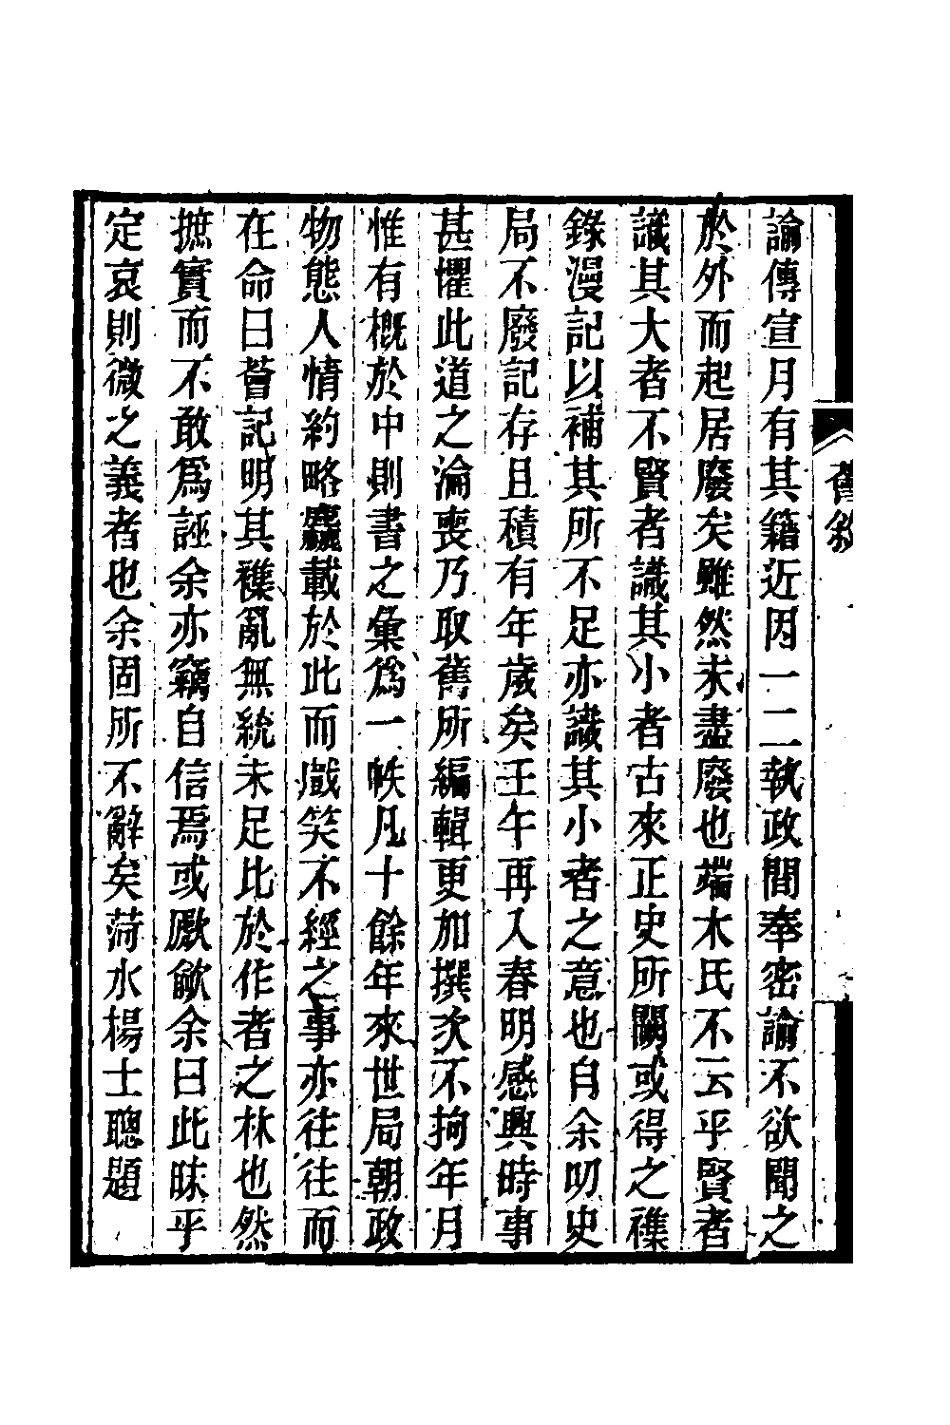 舊敘
諭傳宣月有其籍近因一二執政間奉密諭不欲聞之
於外而起居廢矣雖然未盡廢也端木氏不云乎賢者
識其大者不賢者識其小者古來正史所闕或得之襍
錄漫記以補其所不足亦識其小者之意也自余叨史
局不廢記存且積有年歲矣壬午再入春明感興時事
甚懼此道之淪喪乃取舊所編輯更加撰次不拘年月
惟有概於中則書之彙爲一帙凡十餘年來世局朝政
物態人情約略麤載於此而戲笑不經之事亦往往而
在命曰薈記明其襍亂無統未足比於作者之林也然
摭實而不敢爲誣余亦竊自信焉或厭歈余曰此昧乎
定哀則微之義者也余固所不辭矣菏水楊士聰題